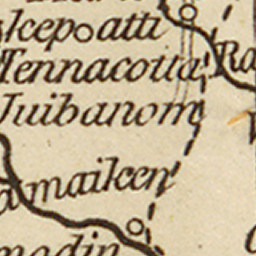 lcepoatti
Tennacotta
Ra
Juibanom
amailceen
madin